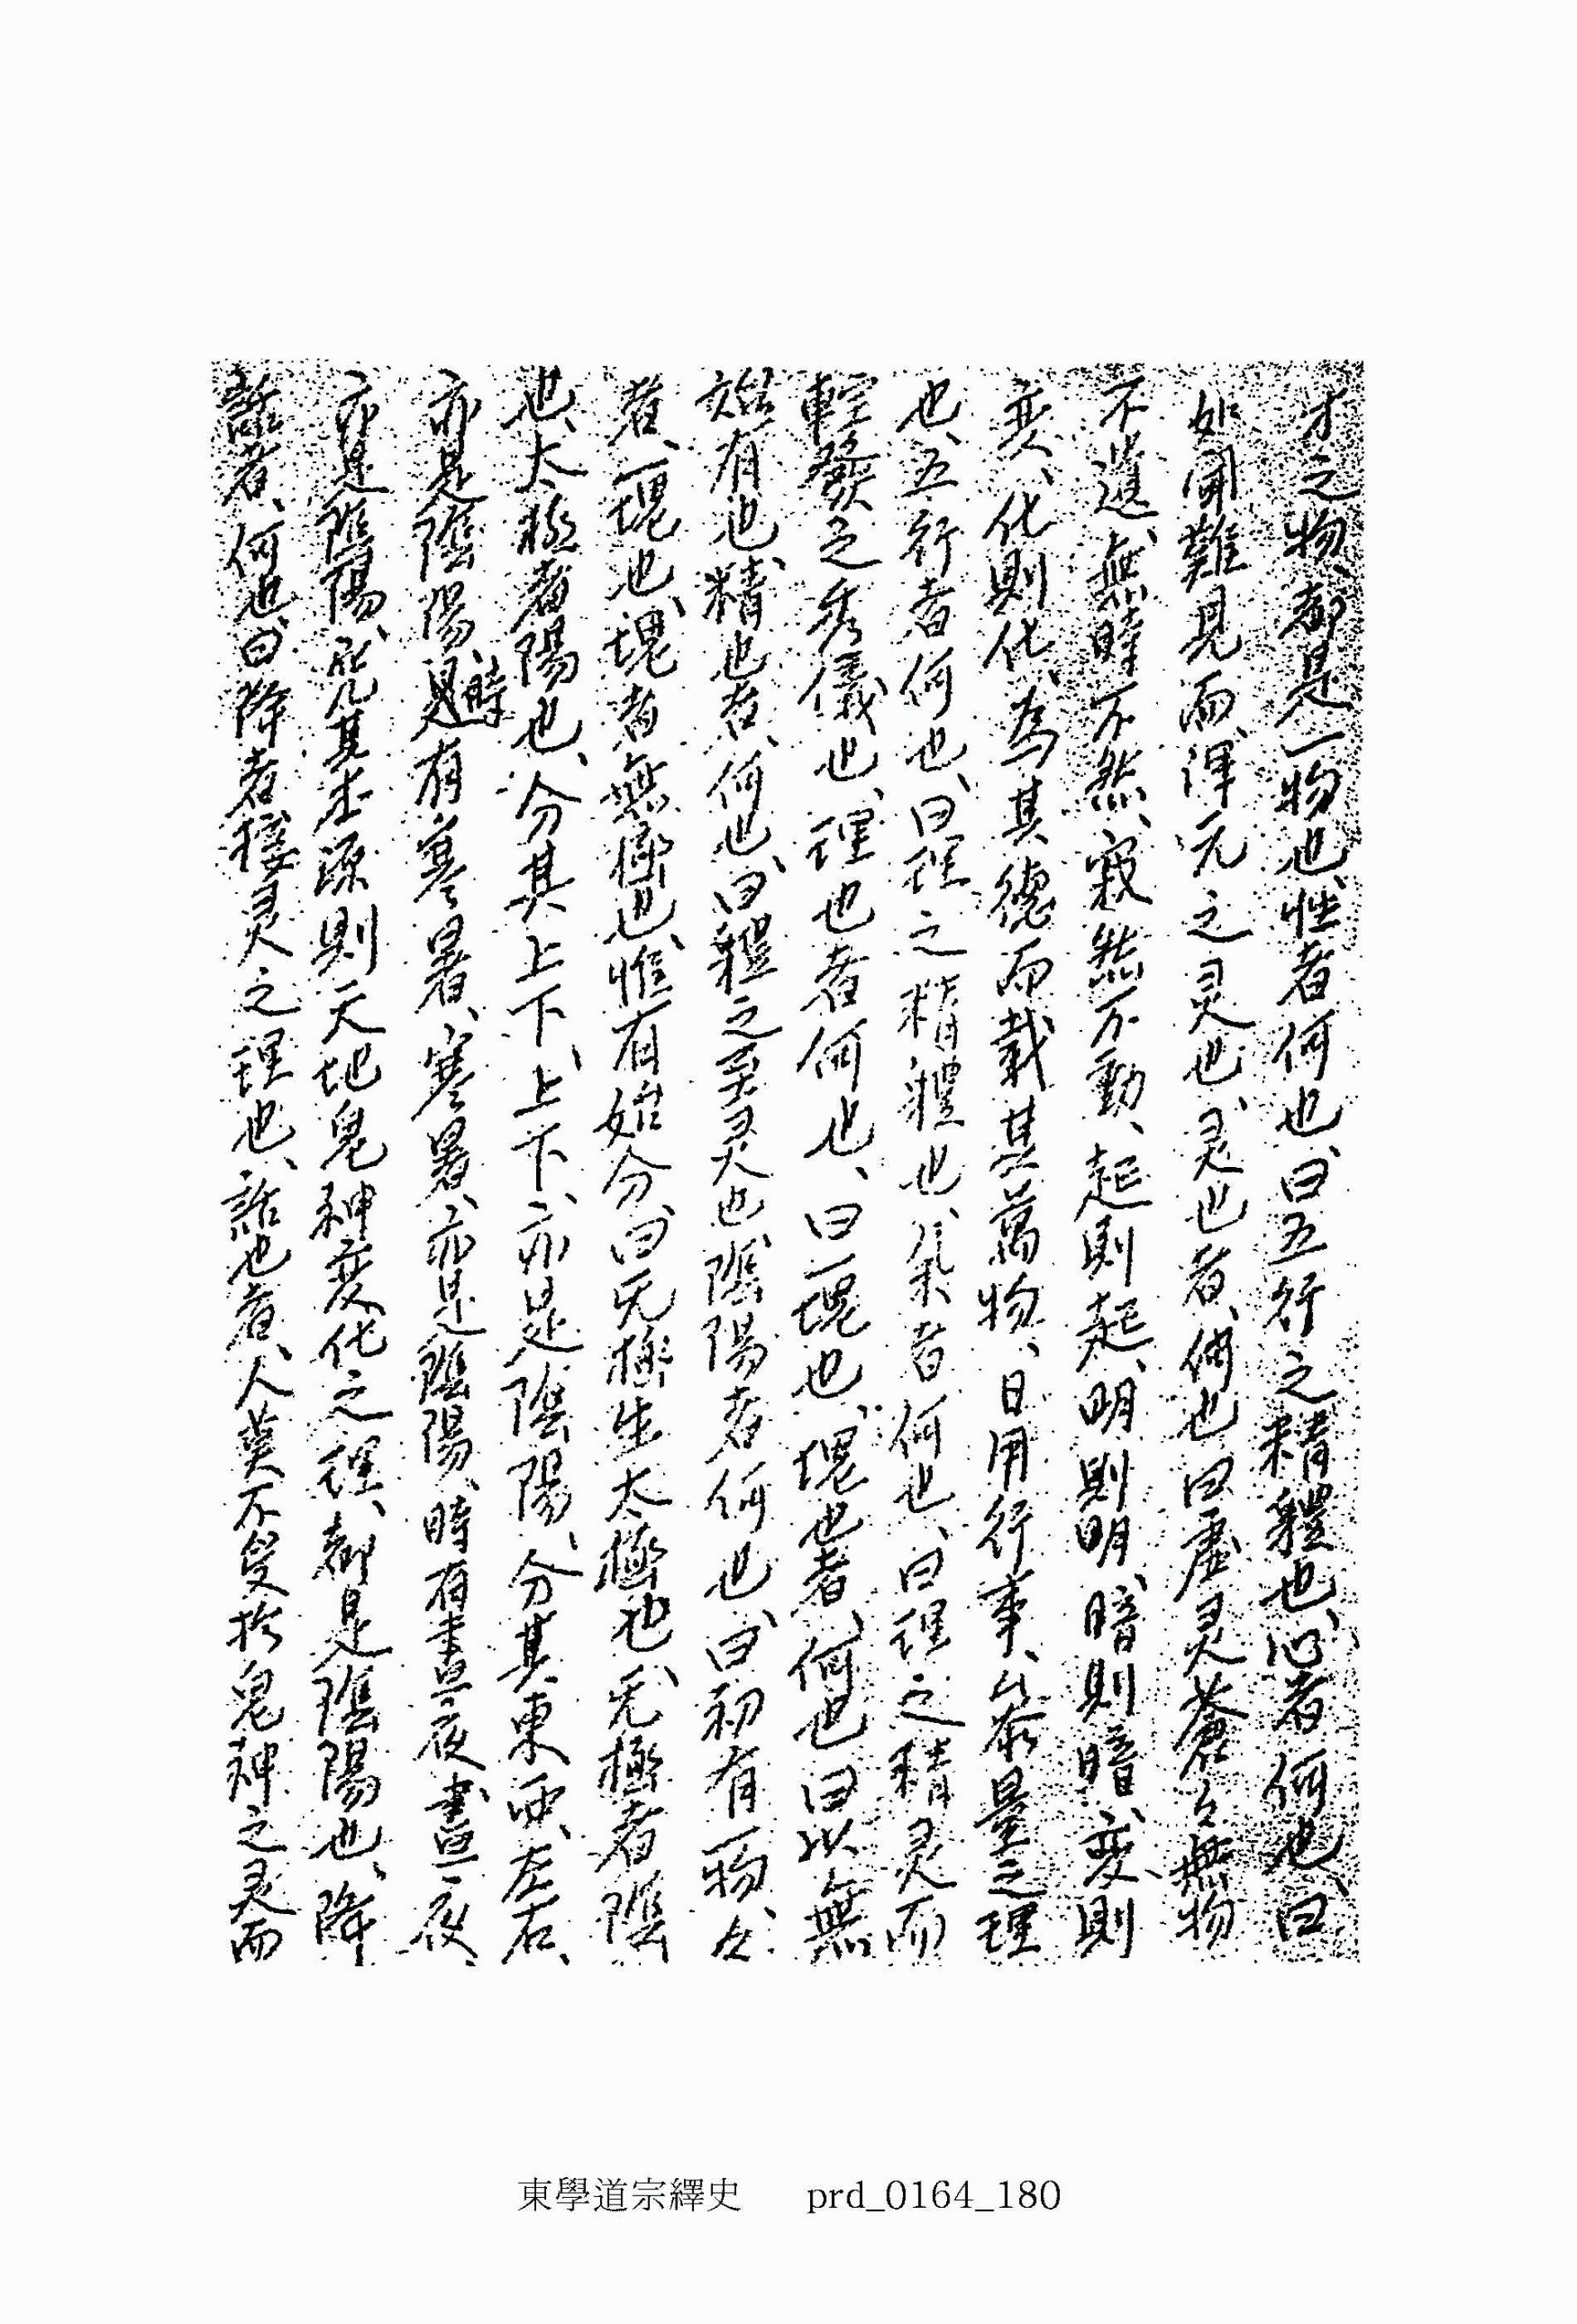 才之物、都是一物也、性者何也、曰五行之精軆也、心者何也、曰
如聞難見而、渾元之灵也、灵也者、何也曰虛灵蒼々無物
不遺、無時不然、寂然不動、起則起、明則明、暗則暗、变則
变、化則化、為其德而載其萬物、日用行事、无量之理
也、五行者何也、曰理之精軆也、氣者何也、曰理之精灵而
輕發之秀儀也、理也者何也、曰一塊也、塊也者、何也曰以無
始有也、精也者、何也、曰軆之至灵也、陰陽者何也、曰初有一物、々
者、一塊也、塊者無極也、惟有始分、曰无極生太極也、无極者陰
也、太極者陽也、分其上下、上下、亦是陰陽、分其東西、左右、
亦是陰陽、時有寒暑、寒暑、亦是陰陽、時有晝夜、晝夜、
亦是陰陽、究其本源則天地鬼神变化之理、都是陰陽也、降
話者、何也、曰降者、接灵之理也、話也者、人莫不受於鬼神之灵而
東學道宗繹史 prd_0164_180